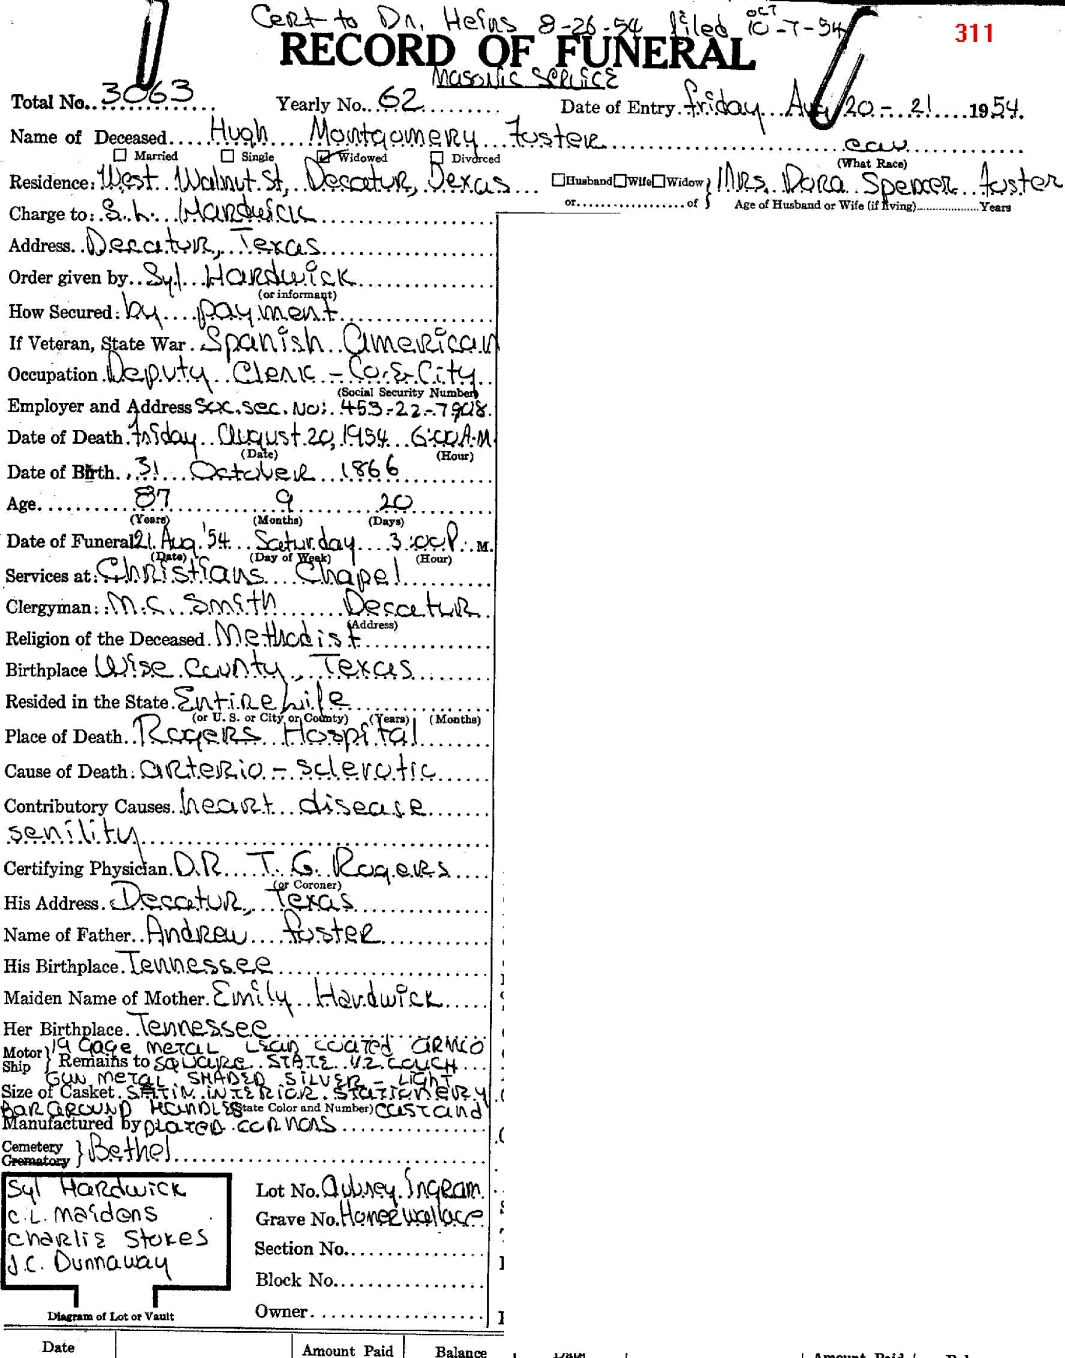 Cert to Dr. Heins 8-26-54 filed OCT 10-7-54
311
RECORD OF FUNERAL
Masonic Service
Total No. 3063 Yearly No. 62 Date of Entry Friday Aug 20-21 1954
Name of Deceased Hugh Montgomery Foster cau
Married Single Widowed Divorced (What Race)
Residence: West Walnut St, Decatur, Texas Husband Wife Widow } Mrs. Dora Spencer Foster
or of } Age of Husband or Wife (if living) Years
Charge to: S.L. Hardwick
Address Decatur, Texas
Order given by Syl Hardwick
(or informant)
How Secured: by payment
If Veteran, State War Spanish American
Occupation Deputy Clerk - Co. & City
(Social Security Number)
Employer and Address Soc. Sec. No: 453-22-7908
Date of Death Friday August 20, 1954 6:00 A.M
(Date) (Hour)
Date of Birth 31 October 1866
Age 87 9 20
(Years) (Months) (Days)
Date of Funeral 21 Aug '54 Saturday 3:00 P. M.
(Date) (Day of Week) (Hour)
Services at: Christians Chapel
Clergyman: M.C. Smith Decatur
(Address)
Religion of the Deceased Methodist
Birthplace Wise County, Texas
Resided in the State Entire Life
(or U. S. or City or County) (Years) (Months)
Place of Death Rogers Hospital
Cause of Death: arterio-sclerotic
Contributory Causes heart disease
senility
Certifying Physician D.R. T. G. Rogers
(or Coroner)
His Address Decatur, Texas
Name of Father Andrew Foster
His Birthplace Tennessee
Maiden Name of Mother Emily Hardwick
Her Birthplace Tennessee
19 Gage metal coated ARMCO
Motor Ship } Remains to Square State 1/2 Couch
Gun metal shaded silver - light
Size of Casket Satin interior. Stationery
Bar around handles (State Color and Number) cast and
Manufactured by plated
Cemetery Crematory } Bethel
Syl Hardwick
C.L. Maidens
Charlie Stokes
J.C. Dunnaway
Lot No. Aubrey Ingram
Grave No. Homer Wallace
Section No.
Block No.
Owner
Diagram of Lot or Vault
Date Amount Paid Balance Date Amount Paid